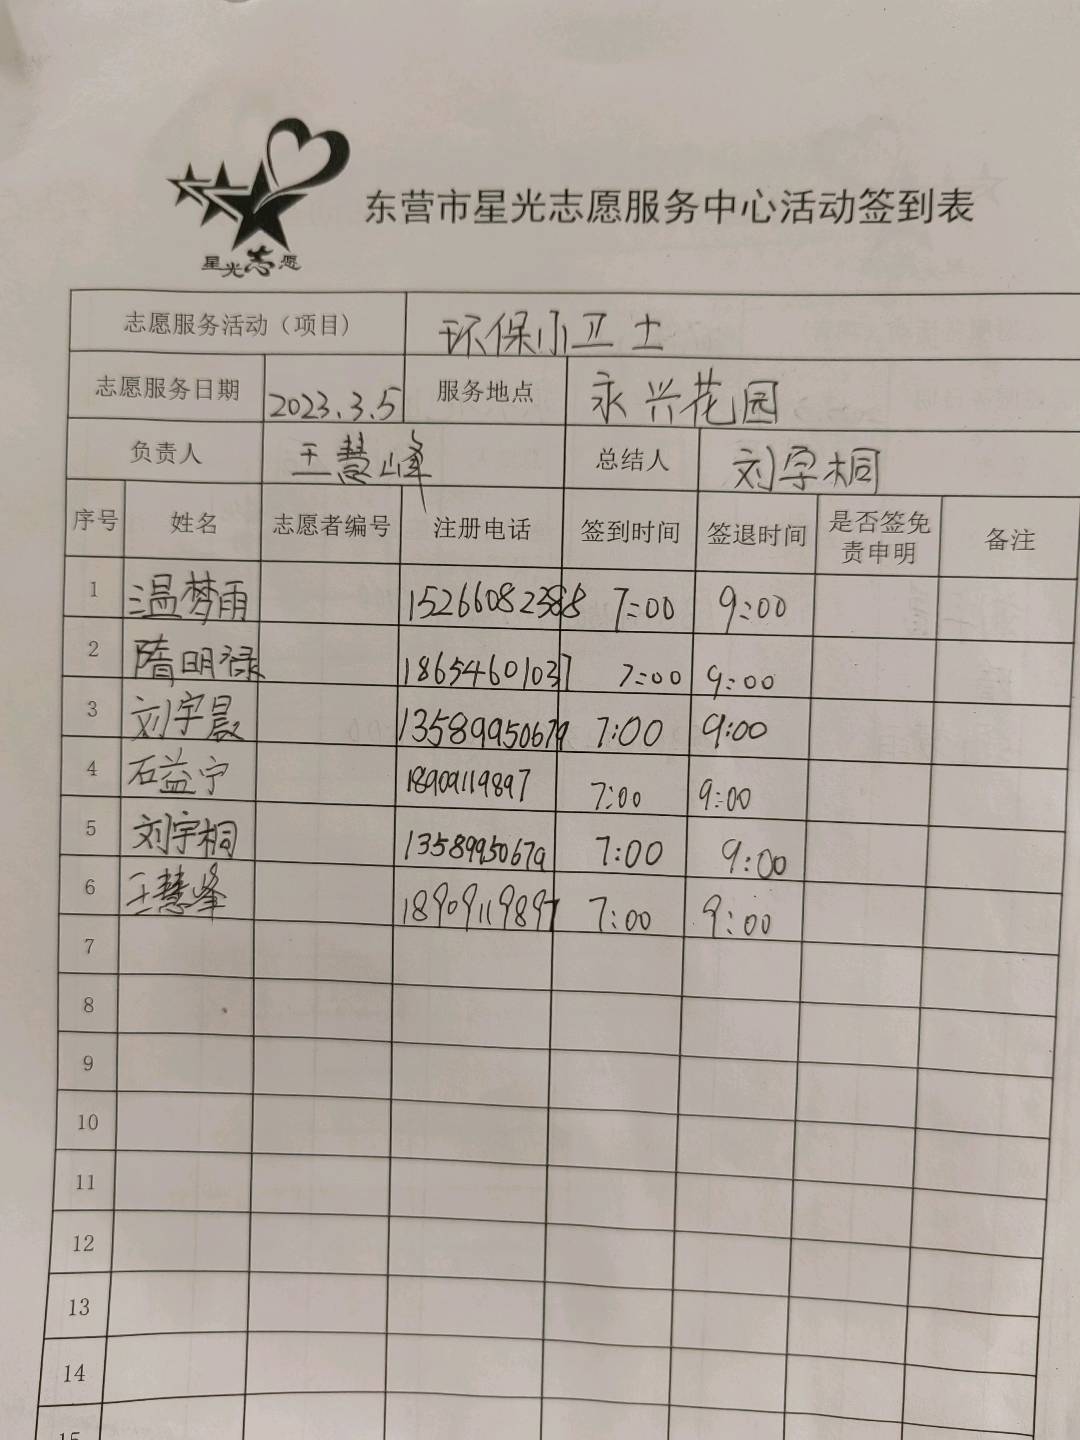 东营市星光志愿服务中心活动签到表
星光志愿
志愿服务活动（项目） 环保小卫士
志愿服务日期 2023.3.5 服务地点 永兴花园
负责人 王慧峰 总结人 刘宇桐
序号 姓名 志愿者编号 注册电话 签到时间 签退时间 是否签免责申明 备注
1 温梦雨 15266082388 7:00 9:00
2 隋明禄 18654601037 7:00 9:00
3 刘宇晨 13589950679 7:00 9:00
4 石益宁 18909119897 7:00 9:00
5 刘宇桐 13589950679 7:00 9:00
6 王慧峰 18909119897 7:00 9:00
7
8
9
10
11
12
13
14
15